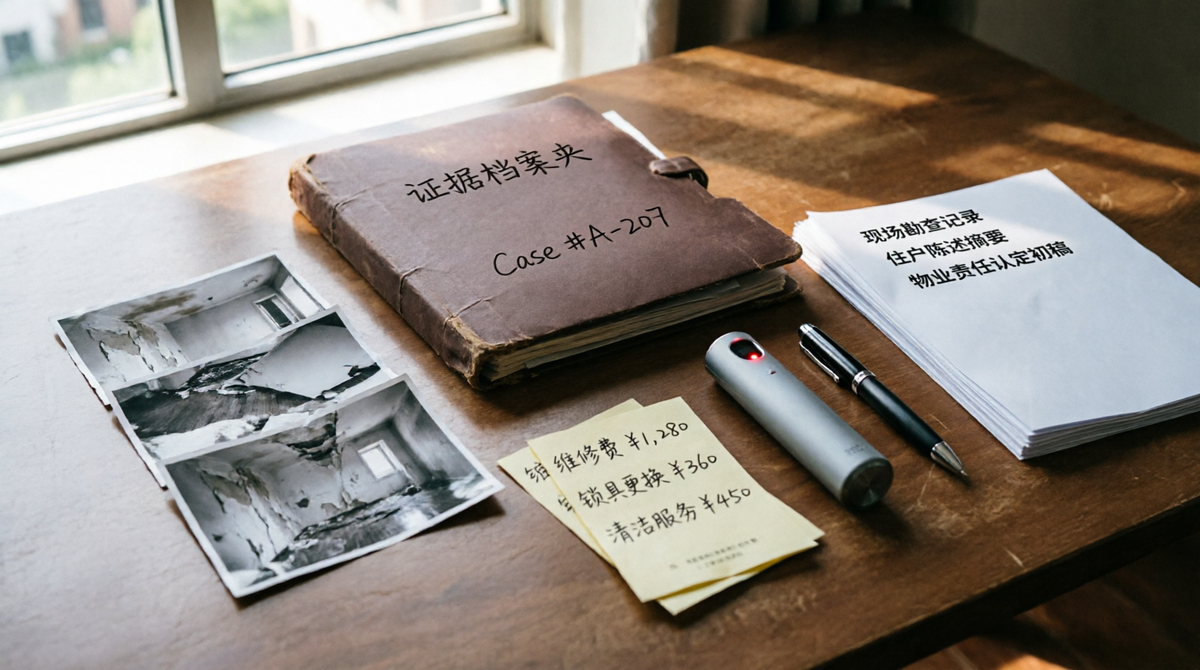 证据档案夹
Case #A-207
现场勘查记录
住户陈述摘要
物业责任认定初稿
维修费 ¥1,280
锁具更换 ¥360
清洁服务 ¥450